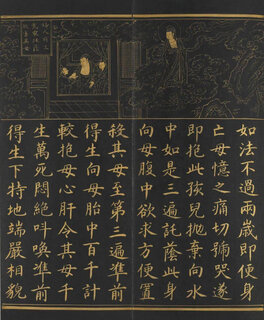 如法不過兩歲即便身
亡母憶之痛切號哭遂
即抱此孩兒拋棄向水
中如是三遍託蔭此身
向母腹中欲求方便置
殺其母至第三遍準前
得生向母胎中百千計
較抱母心肝令其母千
生萬死悶絕叫喚準前
得生下特地端嚴相貌